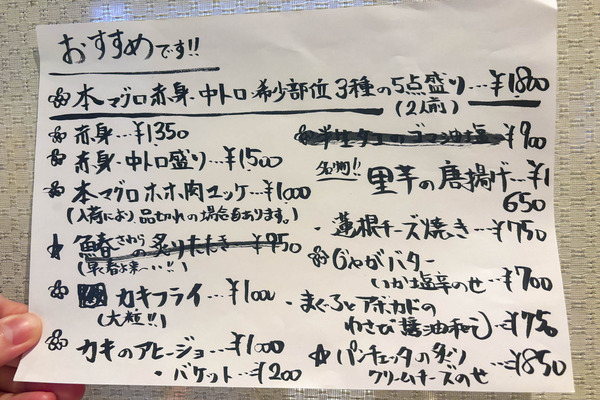 おすすめです!!
本マグロ赤身・中トロ・希少部位3種の5点盛り…¥1800
(2人前)
赤身…¥1350
赤身・中トロ盛り…¥1500
本マグロホホ肉ユッケ…¥1000
(入荷により、品切れの場合あります。)
鰆さわらの炙りたたき ¥950
カキフライ…¥1000
(大粒!!)
カキのアヒージョ…¥1000
・バケット…¥200
半生タコのゴマ油塩 ¥900
名物!! 里芋の唐揚げ…¥1
650
・蓮根チーズ焼き…¥750
じゃがバター
いか塩辛のせ…¥700
・まぐろとアボカドの
わさび醤油和え…¥750
パンチェッタの炙り
クリームチーズのせ…¥850